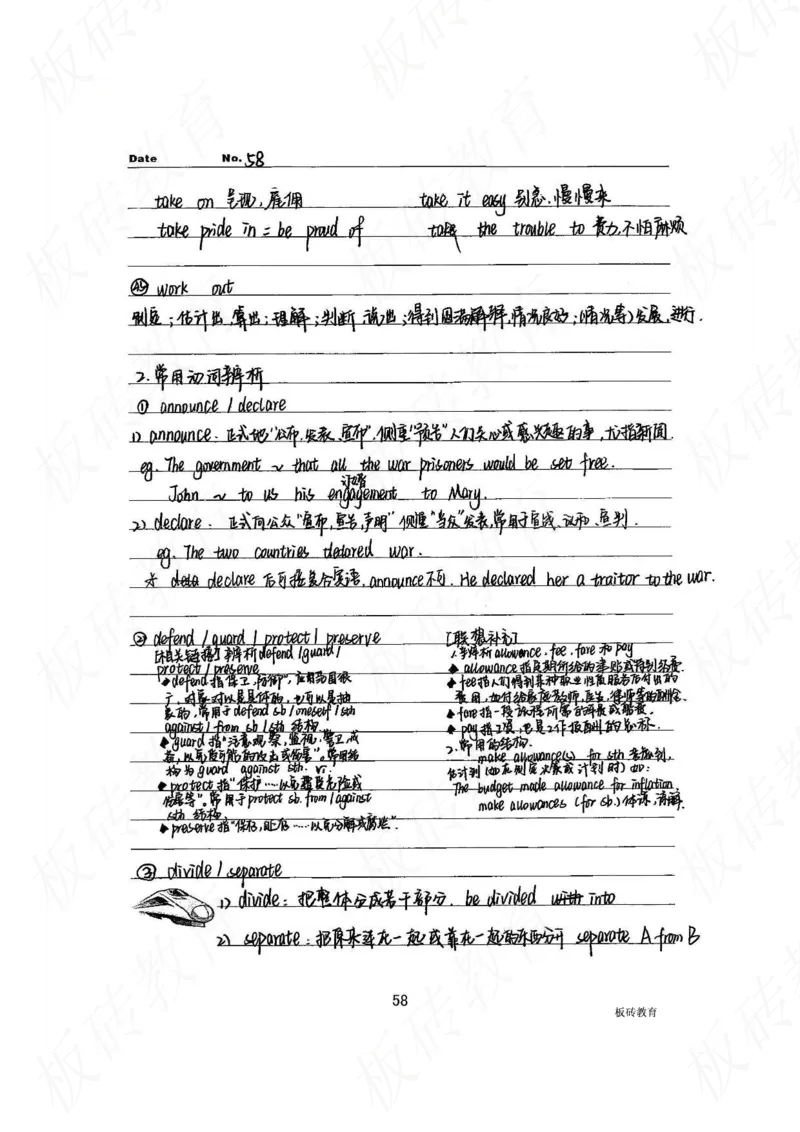 Date No. 58
take on 呈现,雇佣 take it easy 别急,慢慢来
take pride in = be proud of take the trouble to 费力,不怕麻烦
㊺ work out
制定;估计出,算出;理解;判断,说出;得到因为解释,情况良好;(情况等)发展,进行.
2.常用动词辨析
① announce / declare
1) announce. 正式地"公布,发表,宣布",侧重"预告"人们关心或感兴趣的事,尤指新闻.
eg. The government ~ that all the war prisoners would be set free.
订婚
John ~ to us his engagement to Mary.
2) declare. 正式向公众"宣布,宣告,声明" 侧重"当众"发表,常用于宣战、议和、宣判.
eg. The two countries delared war.
☆ declare 后可接复合宾语,announce不可. He declared her a traitor to the war.
② defend / guard / protect / preserve
[相关链接] 辨析 defend / guard /
protect / preserve
◆ defend 指"保卫,防御",应用范围很
广,对象可以是具体的,也可以是抽
象的,常用于defend sb / oneself / sth
against / from sb / sth 结构.
◆ guard 指"注意观察,监视,警卫,戒
着,以免有可能的攻击或伤害".常用结
构为 guard against sth.
◆ protect 指"保护……以免遭受危险或
伤害等".常用于protect sb. from / against
sth 结构
◆ preserve 指"保存,贮存……以免分解或腐烂".
[联想补充]
1.辨析 allowance, fee, fare 和 pay
◆ allowance 指定期所给的津贴或得到经费.
◆ fee 指人们得到某种职业性质服务后付出的
费用,如付给家庭教师,医生,律师等的酬金.
◆ fare 指一段旅程所需的车费或船费.
◆ pay 指工资,也是工作报酬的总称.
2.常用的结构.
make allowance(s) for sth 考虑到,
估计到(如在制定决策或计划时) 如:
The budget made allowance for inflation.
make allowances (for sb.) 体谅,谅解.
③ divide / separate
1) divide: 把整体分成若干部分. be divided with into
2) separate: 把原来连在一起或靠在一起的东西分开 separate A from B
58
板砖教育